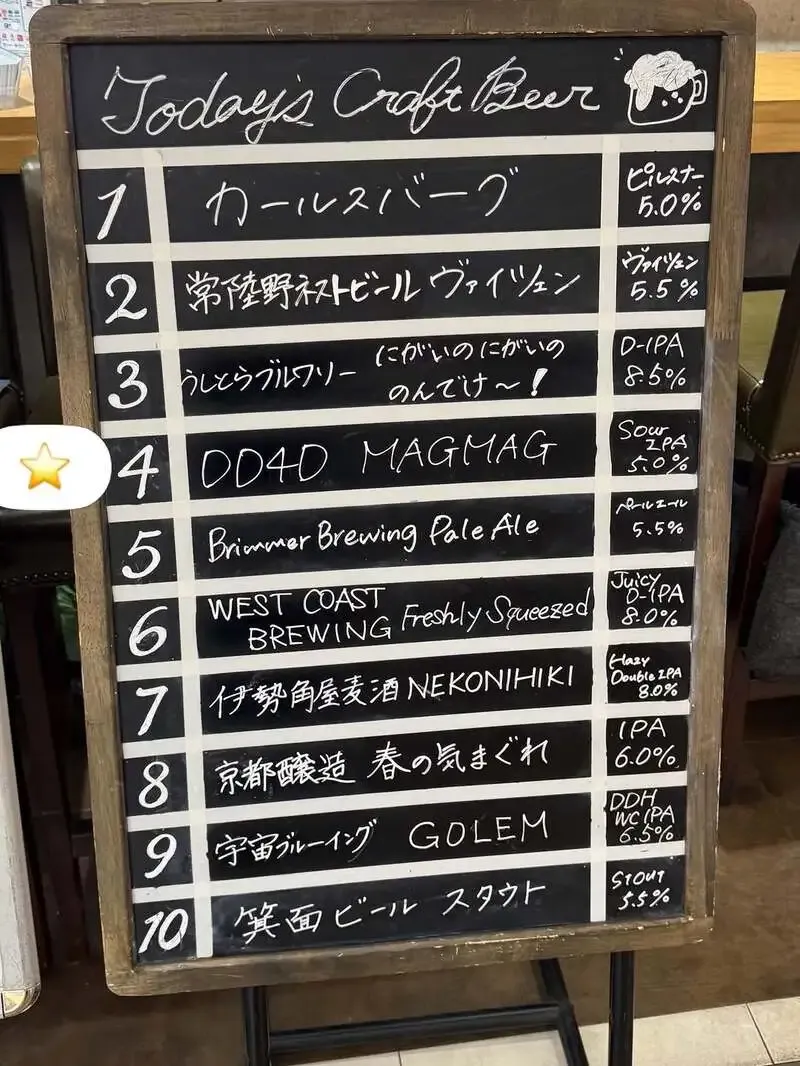 Today's Craft Beer
1 カールスバーグ ピルスナー 5.0%
2 常陸野ネストビール ヴァイツェン ヴァイツェン 5.5%
3 うしとらブルワリー にがいのにがいの
のんでけ〜! D-IPA 8.5%
4 DD4D MAGMAG Sour IPA 5.0%
5 Brimmer Brewing Pale Ale ペールエール 5.5%
6 WEST COAST
BREWING Freshly Squeezed Juicy D-IPA 8.0%
7 伊勢角屋麦酒 NEKONIHIKI Hazy Double IPA 8.0%
8 京都醸造 春の気まぐれ IPA 6.0%
9 宇宙ブルーイング GOLEM DDH WC IPA 6.5%
10 箕面ビール スタウト STOUT 5.5%